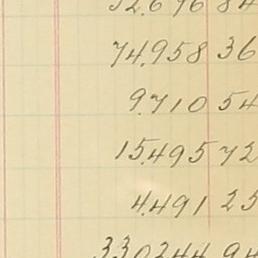 32.676 84
74.958 36
9.710 54
15.495 72
4.491 25
330244 94